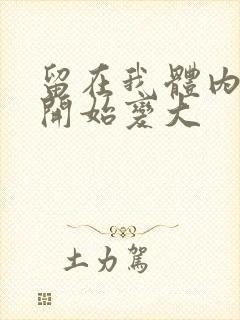 留在我體內
開始變大
土力駕